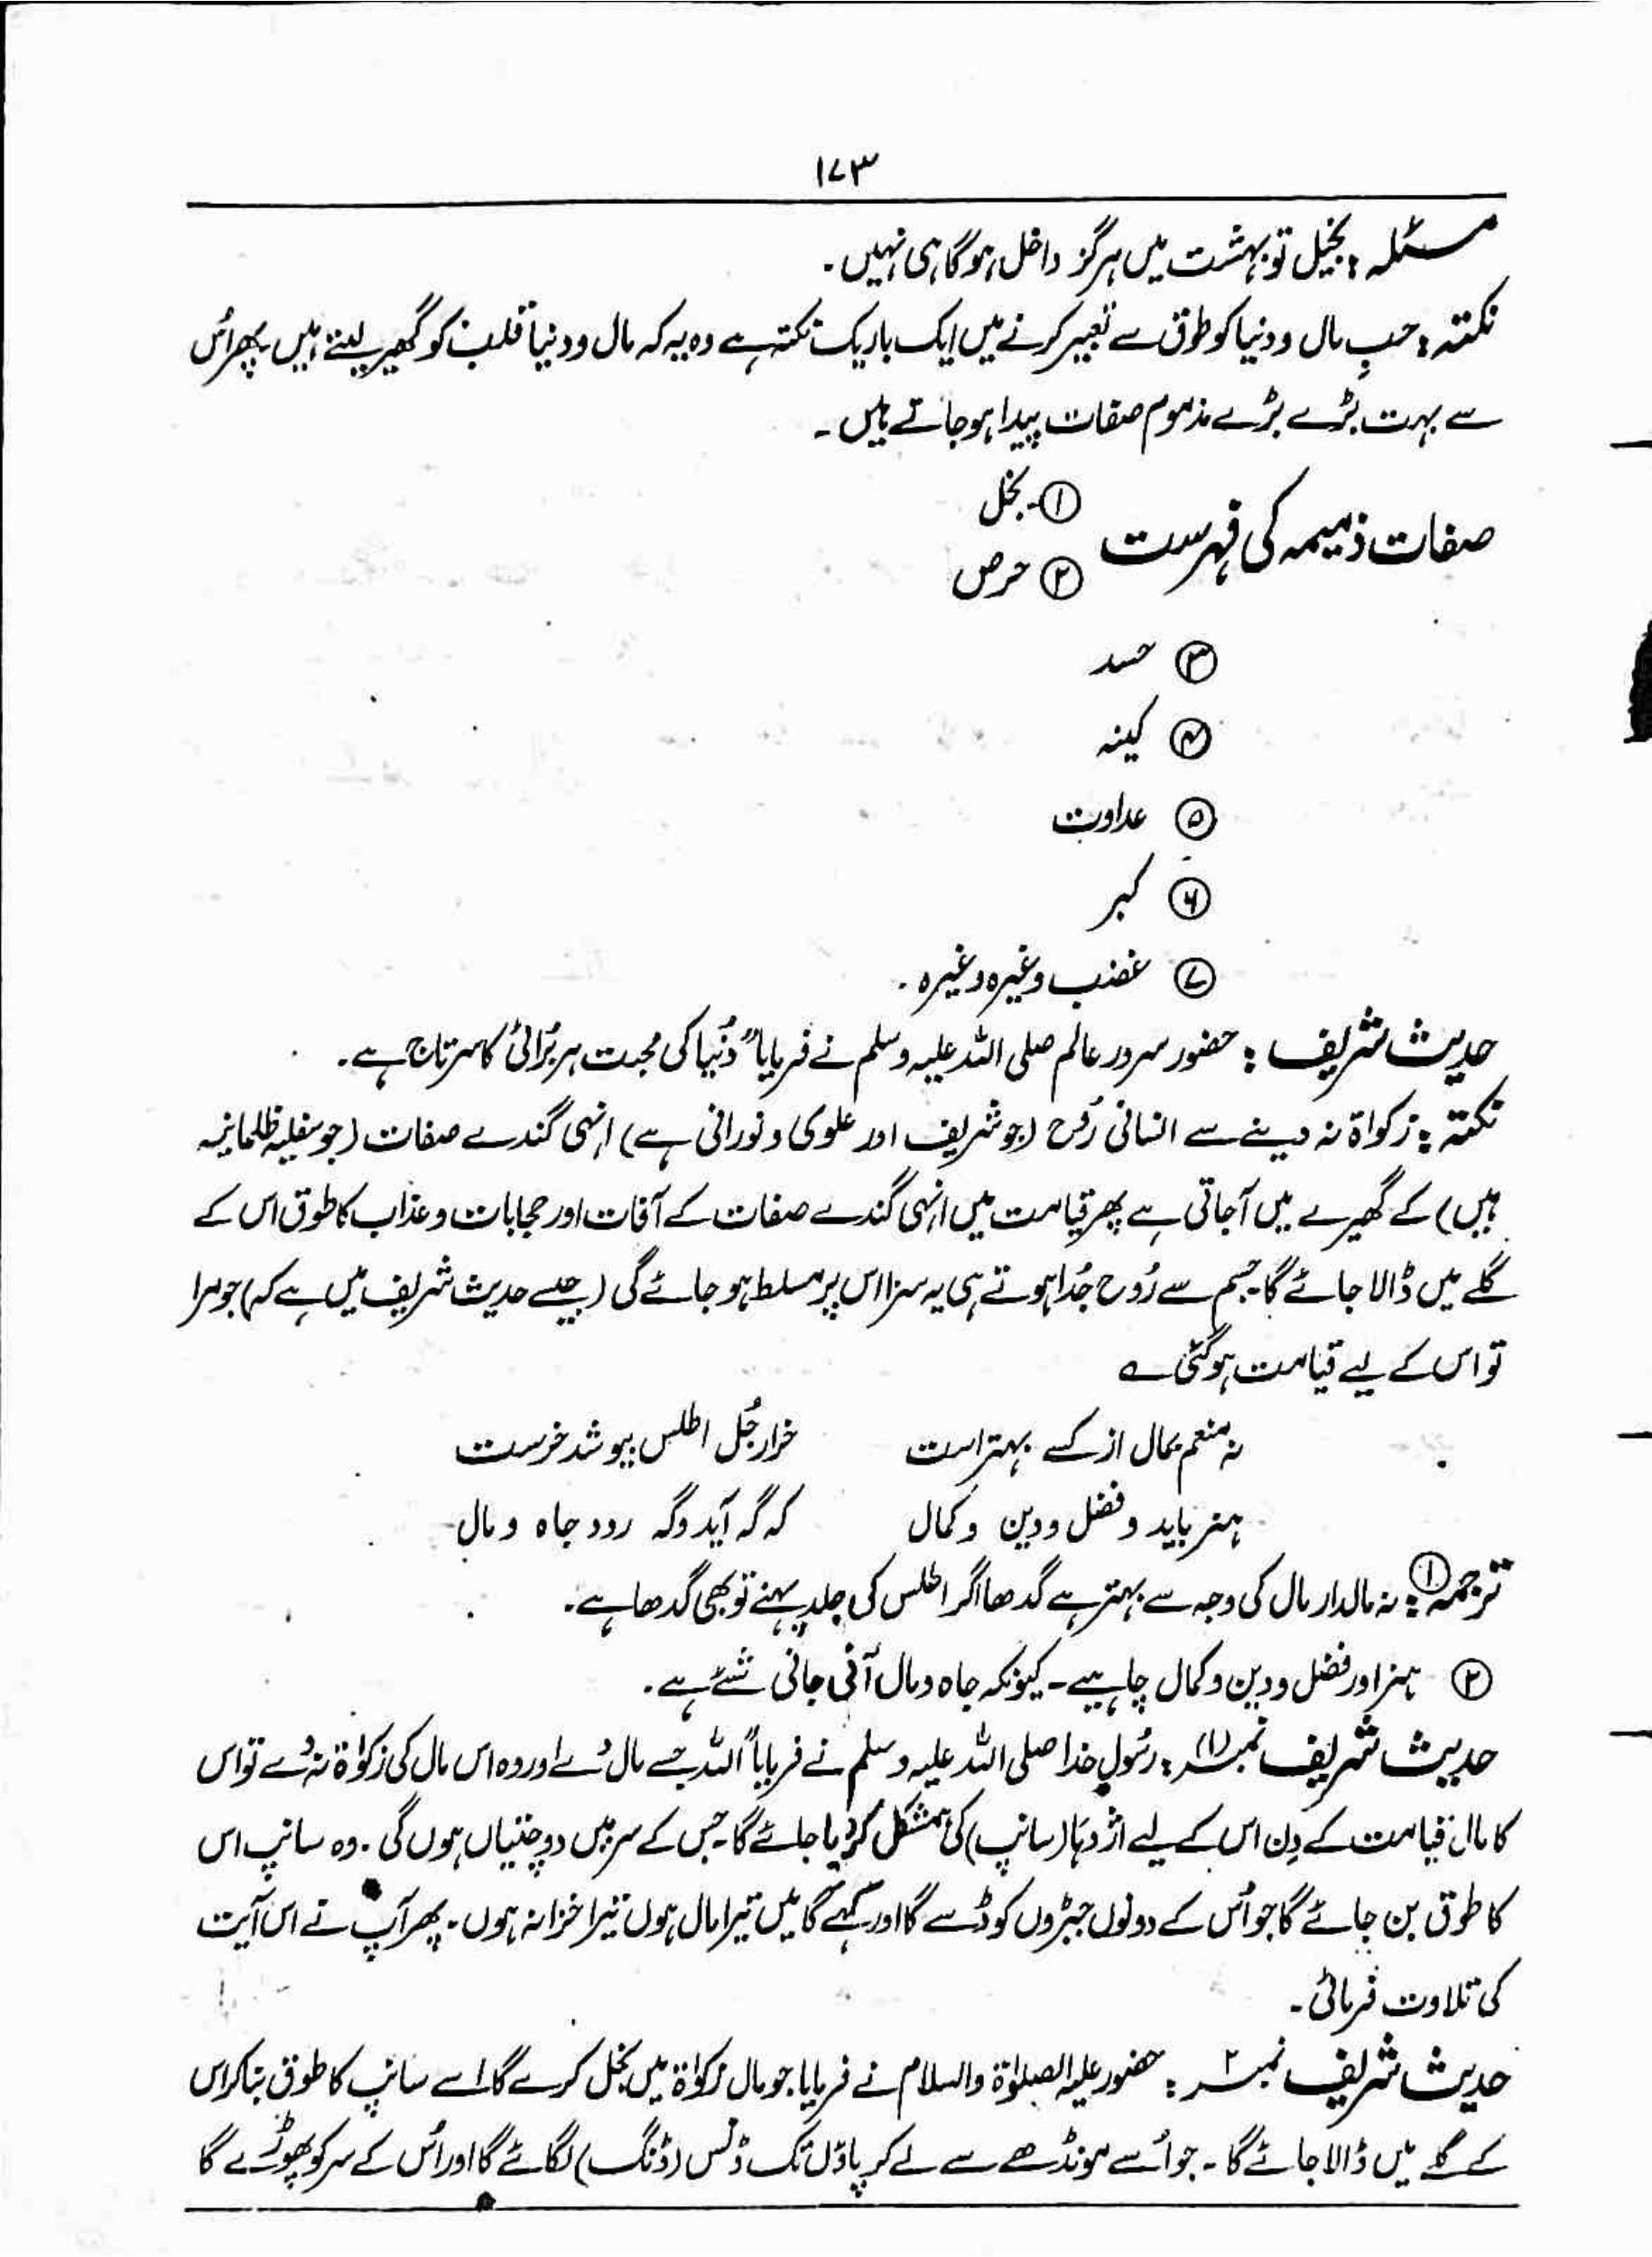 ۱۷۳
مسئلہ : بخیل تو بہشت میں ہرگز داخل ہوگا ہی نہیں ۔
نکتہ : حبِ مال و دنیا کو طوق سے تعبیر کرنے میں ایک باریک نکتہ ہے وہ یہ کہ مال و دنیا قلب کو گھیر لیتے ہیں پھر اُس
سے بہت بڑے بڑے مذموم صفات پیدا ہوجاتے ہیں ۔
صفات ذمیمہ کی فہرست
① بخل
② حرص
③ حسد
④ کینہ
⑤ عداوت
⑥ کبر
⑦ غضب وغیرہ وغیرہ ۔
حدیث شریف : حضور سرور عالم صلی اللہ علیہ وسلم نے فرمایا "دُنیا کی محبت ہر بُرائی کا سرتاج ہے ۔
نکتہ : زکواۃ نہ دینے سے انسانی رُوح (جو شریف اور علوی و نورانی ہے) انہی گندے صفات (جو سفلیہ ظلمانیہ
ہیں) کے گھیرے میں آجاتی ہے پھر قیامت میں انہی گندے صفات کے آفات اور حجابات و عذاب کا طوق اس کے
گلے میں ڈالا جائے گا۔ جسم سے رُوح جُدا ہوتے ہی یہ سزا اس پر مسلط ہو جائے گی (جیسے حدیث شریف میں ہے کہ) جو مرا
تو اس کے لیے قیامت ہوگئی ؎
نہ منعم بمال از کسے بہتر است خرار جُل اطلس بپوشد خرست
ہنر باید و فضل و دین و کمال کہ گہ آید و گہ رود جاہ و مال
ترجمہ ① : نہ مالدار مال کی وجہ سے بہتر ہے گدھا اگر اطلس کی جلد پہنے تو بھی گدھا ہے ۔
② ہنر اور فضل و دین و کمال چاہیے ۔ کیونکہ جاہ و مال آنی جانی شئے ہے ۔
حدیث شریف نمبر (۱) : رسُولِ خدا صلی اللہ علیہ وسلم نے فرمایا "اللہ جسے مال دے اور وہ اس مال کی زکوٰۃ نہ دے تو اس
کا مال قیامت کے دِن اس کے لیے اژدہا (سانپ) کی ہمشکل کر دیا جائے گا۔ جس کے سر میں دو چتیاں ہوں گی ۔ وہ سانپ اس
کا طوق بن جائے گا جو اُس کے دونوں جبڑوں کو ڈسے گا اور کہے گا میں تیرا مال ہوں تیرا خزانہ ہوں ۔ پھر آپ نے اس آیت
کی تلاوت فرمائی ۔
حدیث شریف نمبر ۲ : حضور علیہ الصلوٰۃ والسلام نے فرمایا جو مال زکوٰۃ میں بخل کرے گا اسے سانپ کا طوق بنا کر اس
کے گلے میں ڈالا جائے گا ۔ جو اُسے مونڈھے سے لے کر پاؤں تک ڈس (ڈنگ) لگائے گا اور اُس کے سر کو پھوڑے گا